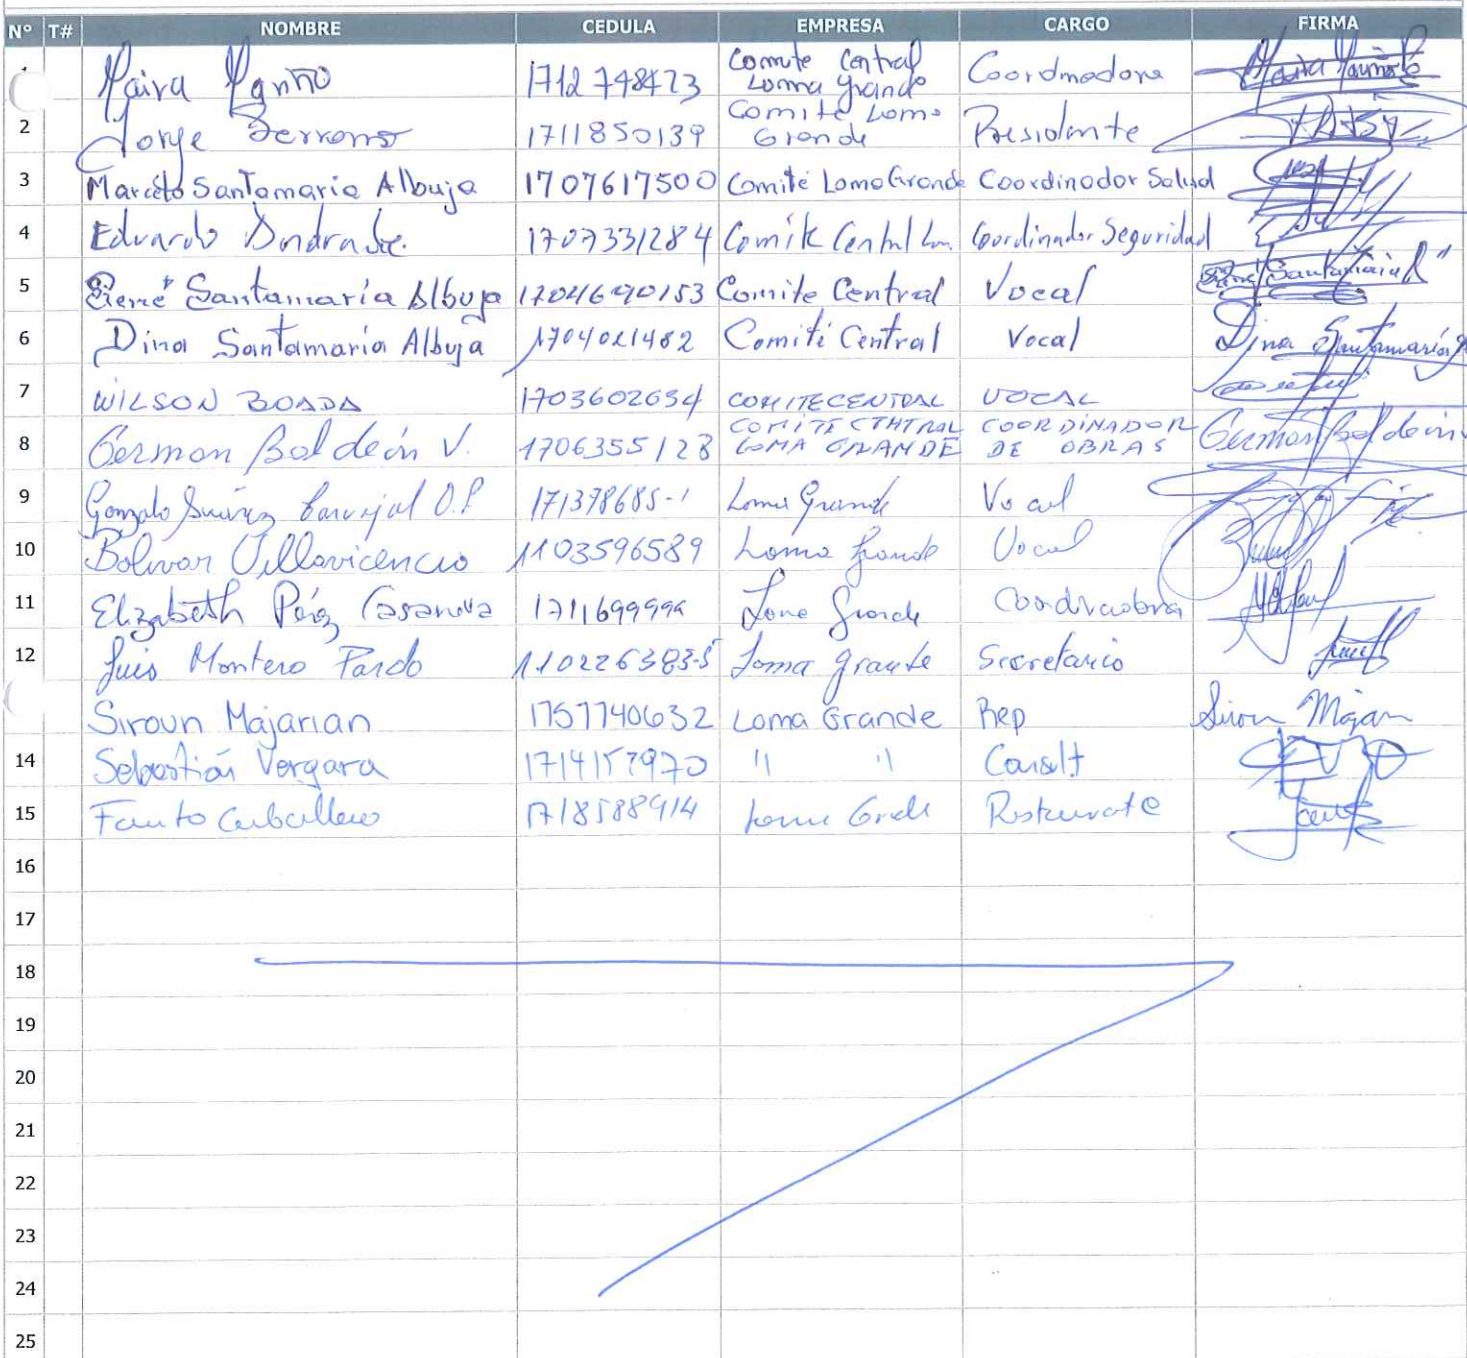 Nº T# NOMBRE CEDULA EMPRESA CARGO FIRMA
Maira Mariño 1712748473 Comite Central Loma Grande Coordinadora
2 Jorge Serrano 1711850139 Comite Loma Grande Presidente
3 Marcelo Santamaria Albuja 1707617500 Comité Loma Grande Coordinador Salud
4 Eduardo Andrade. 1707331284 Comite Central Coordinador Seguridad
5 René Santamaría Albuja 1704690153 Comite Central Vocal
6 Dina Santamaría Albuja 1704021482 Comité Central Vocal Dina Santamaría
7 WILSON BOADA 1703602634 COMITE CENTRAL VOCAL
8 German Baldeón V. 1706355128 COMITE CENTRAL LOMA GRANDE COORDINADOR DE OBRAS German Baldeón
9 Gonzalo Suárez Carvajal O.P. 171378685-1 Loma Grande Vocal
10 Bolivar Villavicencio 1103596589 Loma Grande Vocal
11 Elizabeth Pérez Casanova 1711699999 Loma Grande Coordinadora
12 Luis Montero Pardo 110226383-5 Loma grande Secretario
Siroun Majarian 1757740632 Loma Grande Rep Siroun Majarian
14 Sebastián Vergara 1714157970 " " Consult
15 Fausto Caballero 1718588914 Loma Grande
16
17
18
19
20
21
22
23
24
25